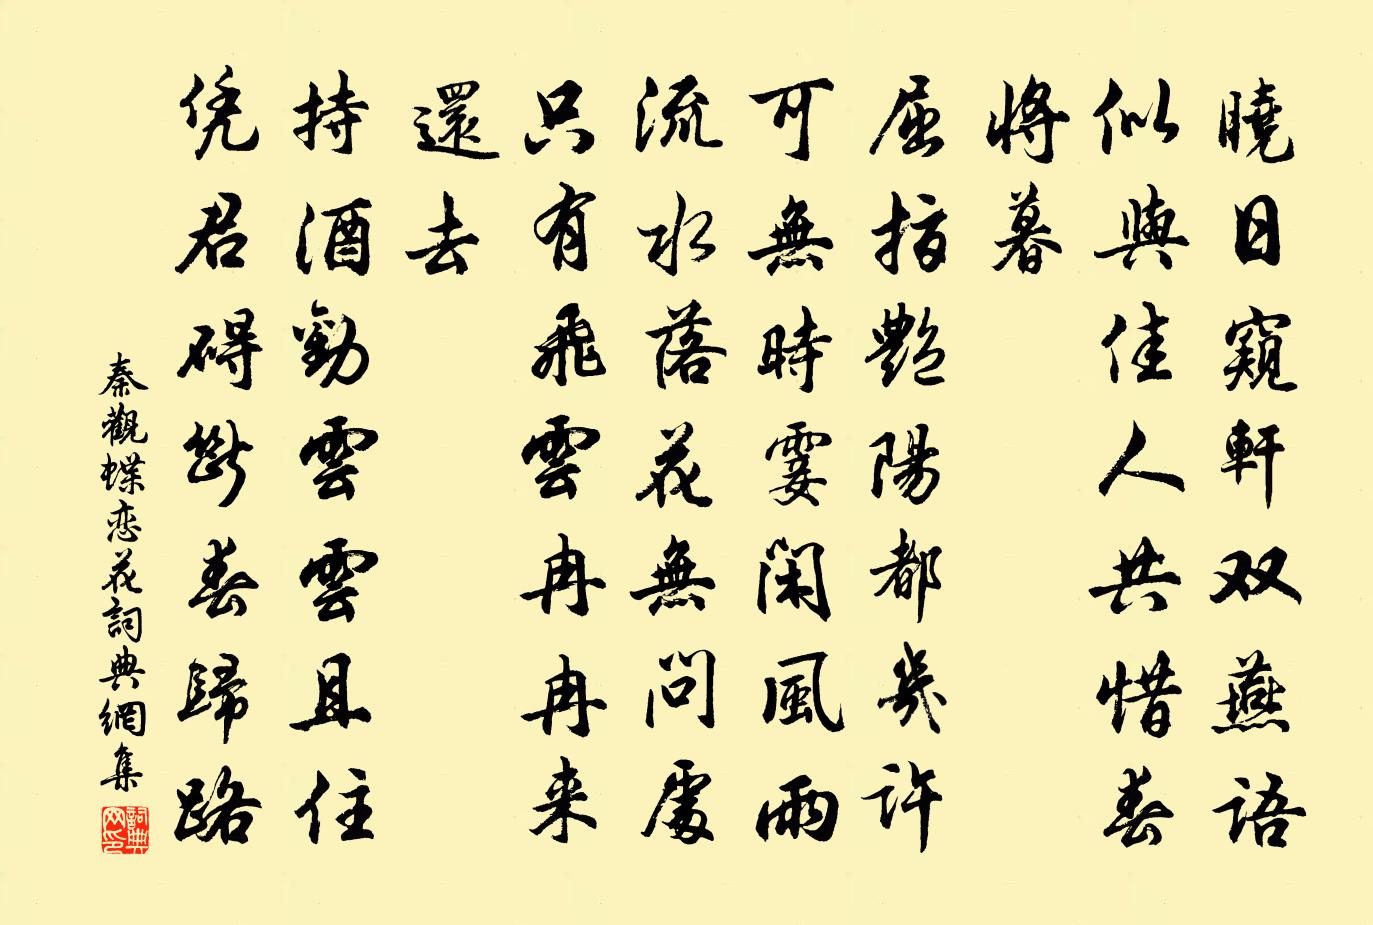 曉日窺軒双燕語
似與佳人共惜春
將暮
屈指艷陽都幾許
可無時霎閑風雨
流水落花無問處
只有飛雲冉冉来
還去
持酒勸雲雲且住
凭君碍斷春歸路
秦觀蝶恋花詞典網集
詞典网印